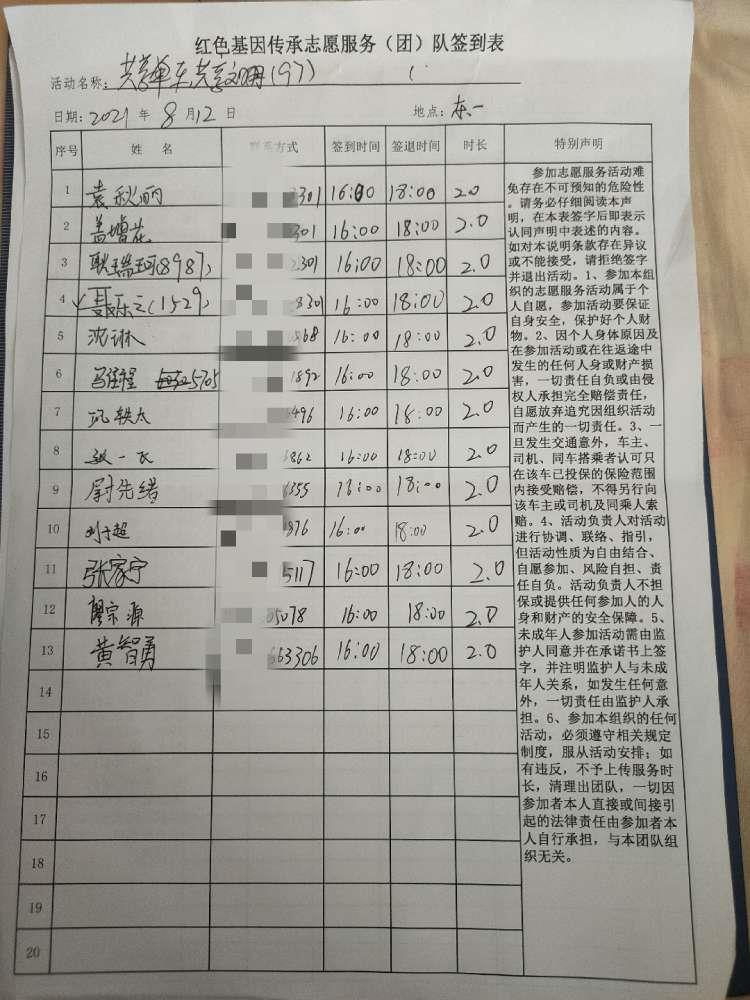 红色基因传承志愿服务（团）队签到表
活动名称：共享单车共享文明(97)
日期：2021 年 8 月 12 日 地点：东一
序号 姓 名 方式 签到时间 签退时间 时长 特别声明
1 袁秋丽 2301 16:00 18:00 2.0
2 盖增花 2301 16:00 18:00 2.0
3 耿瑞珂(8987) 2301 16:00 18:00 2.0
4 聂乐之(1529) 8301 16:00 18:00 2.0
5 沈琳 568 16:00 18:00 2.0
6 5705 1892 16:00 18:00 2.0
7 巩轶太 5496 16:00 18:00 2.0
8 一 6862 16:00 18:00 2.0
9 尉先绪 6355 18:00 18:00 2.0
10 刘子超 1876 16:00 18:00 2.0
11 张家宁 5117 16:00 18:00 2.0
12 宗源 05078 16:00 18:00 2.0
13 黄智勇 663306 16:00 18:00 2.0
14
15
16
17
18
19
20
参加志愿服务活动难
免存在不可预知的危险性。
请务必仔细阅读本声
明，在本表签字后即表示
认同声明中表述的内容。
如对本说明条款存在异议
或不能接受，请拒绝签字
并退出活动。1、参加本组
织的志愿服务活动属于个
人自愿，参加活动要保证
自身安全，保护好个人财
物。2、因个人身体原因及
在参加活动或在往返途中
发生的任何人身或财产损
害，一切责任自负或由侵
权人承担完全赔偿责任，
自愿放弃追究因组织活动
而产生的一切责任。3、一
旦发生交通意外，车主、
司机、同车搭乘者认可只
在该车已投保的保险范围
内接受赔偿，不得另行向
该车主或司机及同乘人索
赔。4、活动负责人对活动
进行协调、联络、指引，
但活动性质为自由结合、
自愿参加、风险自担、责
任自负。活动负责人不担
保或提供任何参加人的人
身和财产的安全保障。5、
未成年人参加活动需由监
护人同意并在承诺书上签
字，并注明监护人与未成
年人关系，如发生任何意
外，一切责任由监护人承
担。6、参加本组织的任何
活动，必须遵守相关规定
制度，服从活动安排；如
有违反，不予上传服务时
长，清理出团队，一切因
参加者本人直接或间接引
起的法律责任由参加者本
人自行承担，与本团队组
织无关。